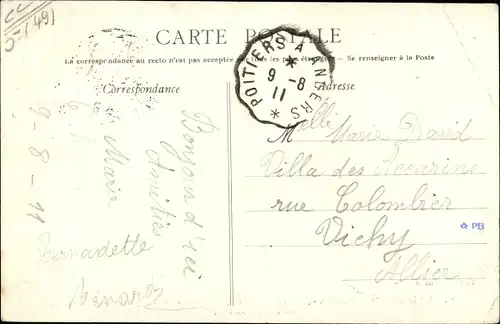 CARTE POSTALE
La correspondance au recto n'est pas acceptée par tous les pays étrangers. - Se renseigner à la Poste
Correspondance
Adresse
POITIERS A ANGERS
9 - 8
11
9-8-11
Bonjour d'ici
Amitiés
Marie
Bernadette
Ménard
Melle Marie David
Villa des
rue Colombier
Vichy
Allier
PB